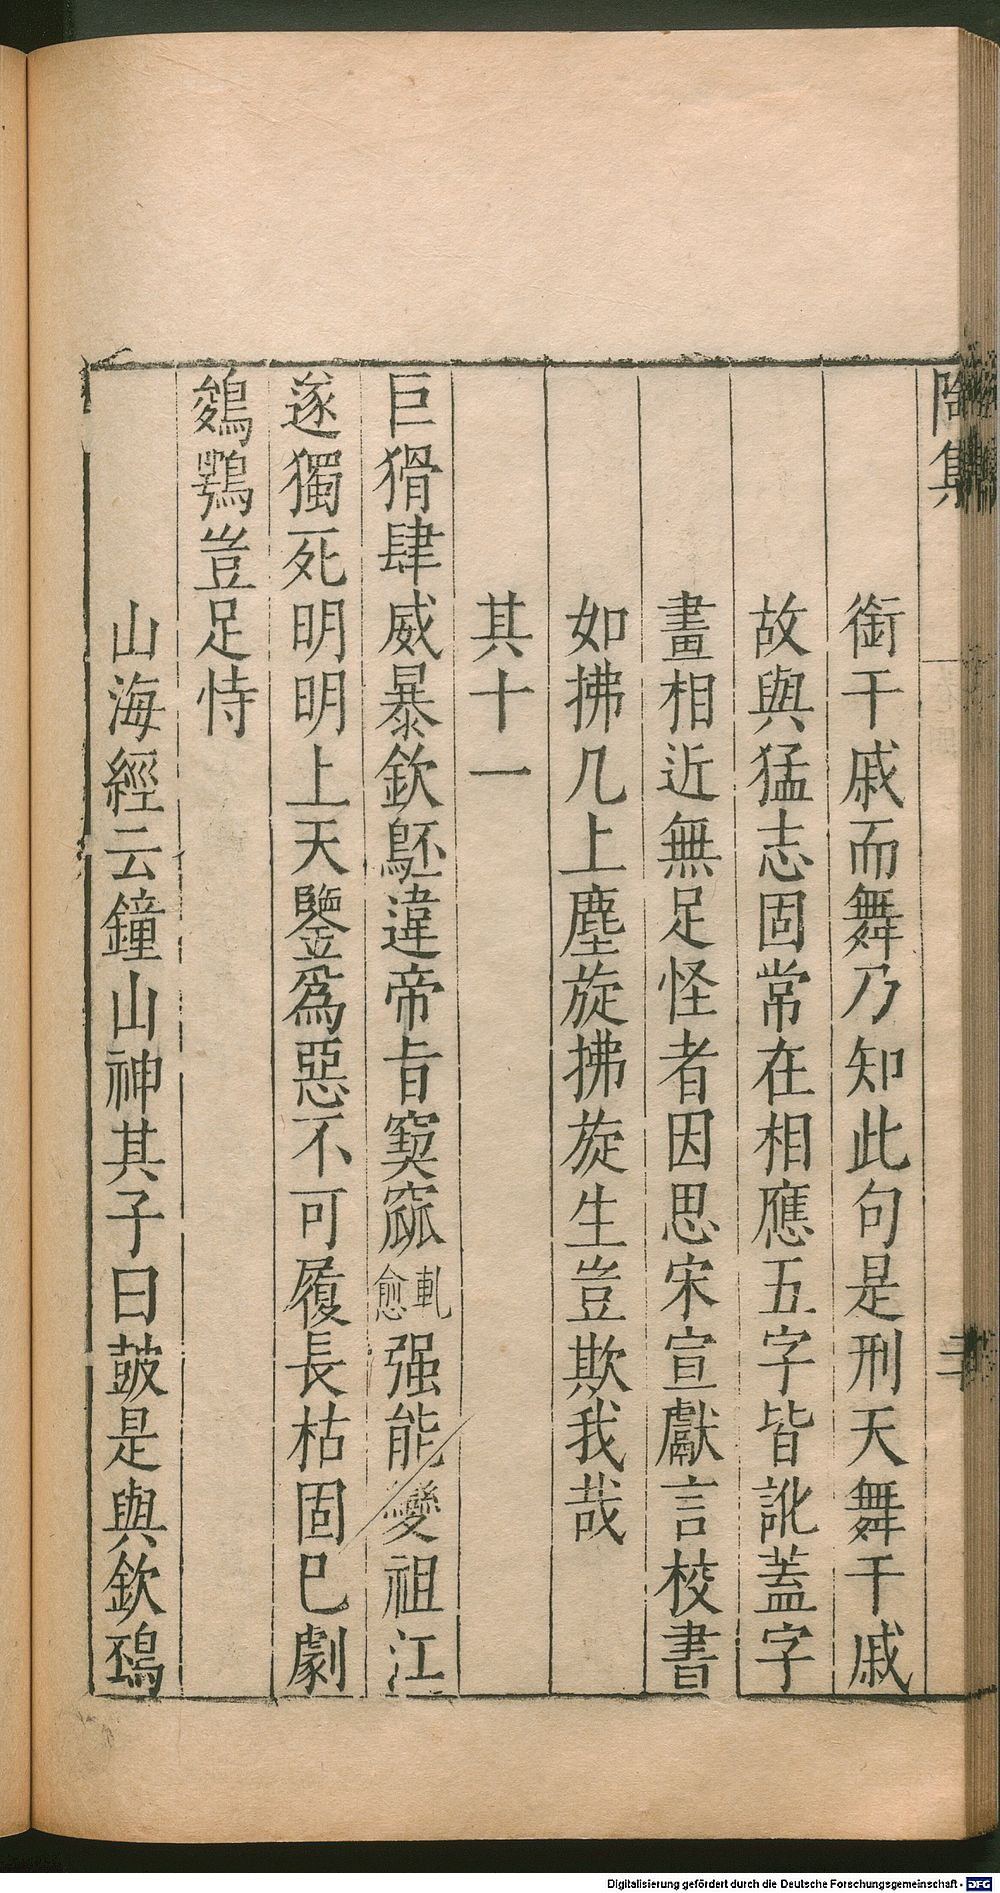 陶集
銜干戚而舞乃知此句是刑天舞干戚
故與猛志固常在相應五字皆訛蓋字
畫相近無足怪者因思宋宣獻言校書
如拂几上塵旋拂旋生豈欺我哉
其十一
巨猾肆威暴欽䲹違帝旨窫窳軋愈强能變祖江
遂獨死明明上天鑒為惡不可履長枯固已劇
鵕鶚豈足恃
山海經云鐘山神其子曰鼓是與欽䲹
Digitalisierung gefördert durch die Deutsche Forschungsgemeinschaft - DFG